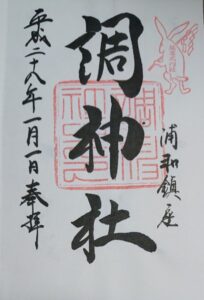 浦和鎮座
調神社
平成二十八年一月一日奉拝